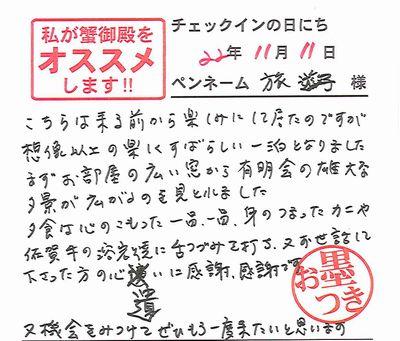 私が蟹御殿を
オススメ
します!!
チェックインの日にち
22年 11月 11日
ペンネーム 旅遊子 様
こちらは来る前から楽しみにして居たのですが
想像以上の楽しくすばらしい一泊となりました
まずお部屋の広い窓から有明会の雄大な
夕景が広がるのを見とれました
夕食は心のこもった一品、一品、身のつまったカニや
佐賀牛の溶岩焼に舌つづみを打ち、又お世話して
下さった方の心遣いに感謝、感謝です
遣
又機会をみつけてぜひもう一度来たいと思います
お墨つき